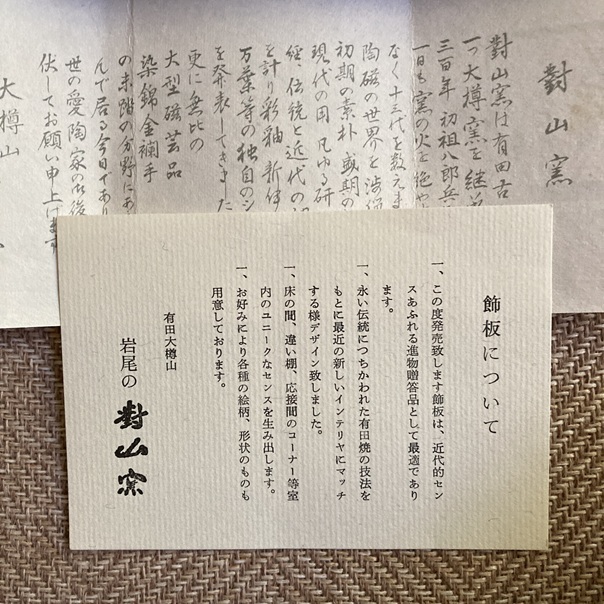 對山窯
對山窯は有田古
一つ大樽窯を継
三百年 初祖八郎兵
一日も窯の火を絶や
なく十三代を数えま
陶磁の世界を
初期の素朴 盛期の
現代の用 凡ゆる研
経、伝統と近代の
を計り彩釉 新
万葉等の独自のシ
を発表してきた
更に無比の
大型磁芸品
染錦金襴手
の未踏の分野にあ
んで居る今日であり
世の愛陶家の御後
伏してお願い申上げます
大樽山
飾板について
一、この度発売致します飾板は、近代的セン
スあふれる進物贈答品として最適であり
ます。
一、永い伝統につちかわれた有田焼の技法を
もとに最近の新しいインテリヤにマッチ
する様デザイン致しました。
一、床の間、違い棚、応接間のコーナー等室
内のユニークなセンスを生み出します。
一、お好みにより各種の絵柄、形状のものも
用意しております。
有田大樽山
岩尾の 對山窯